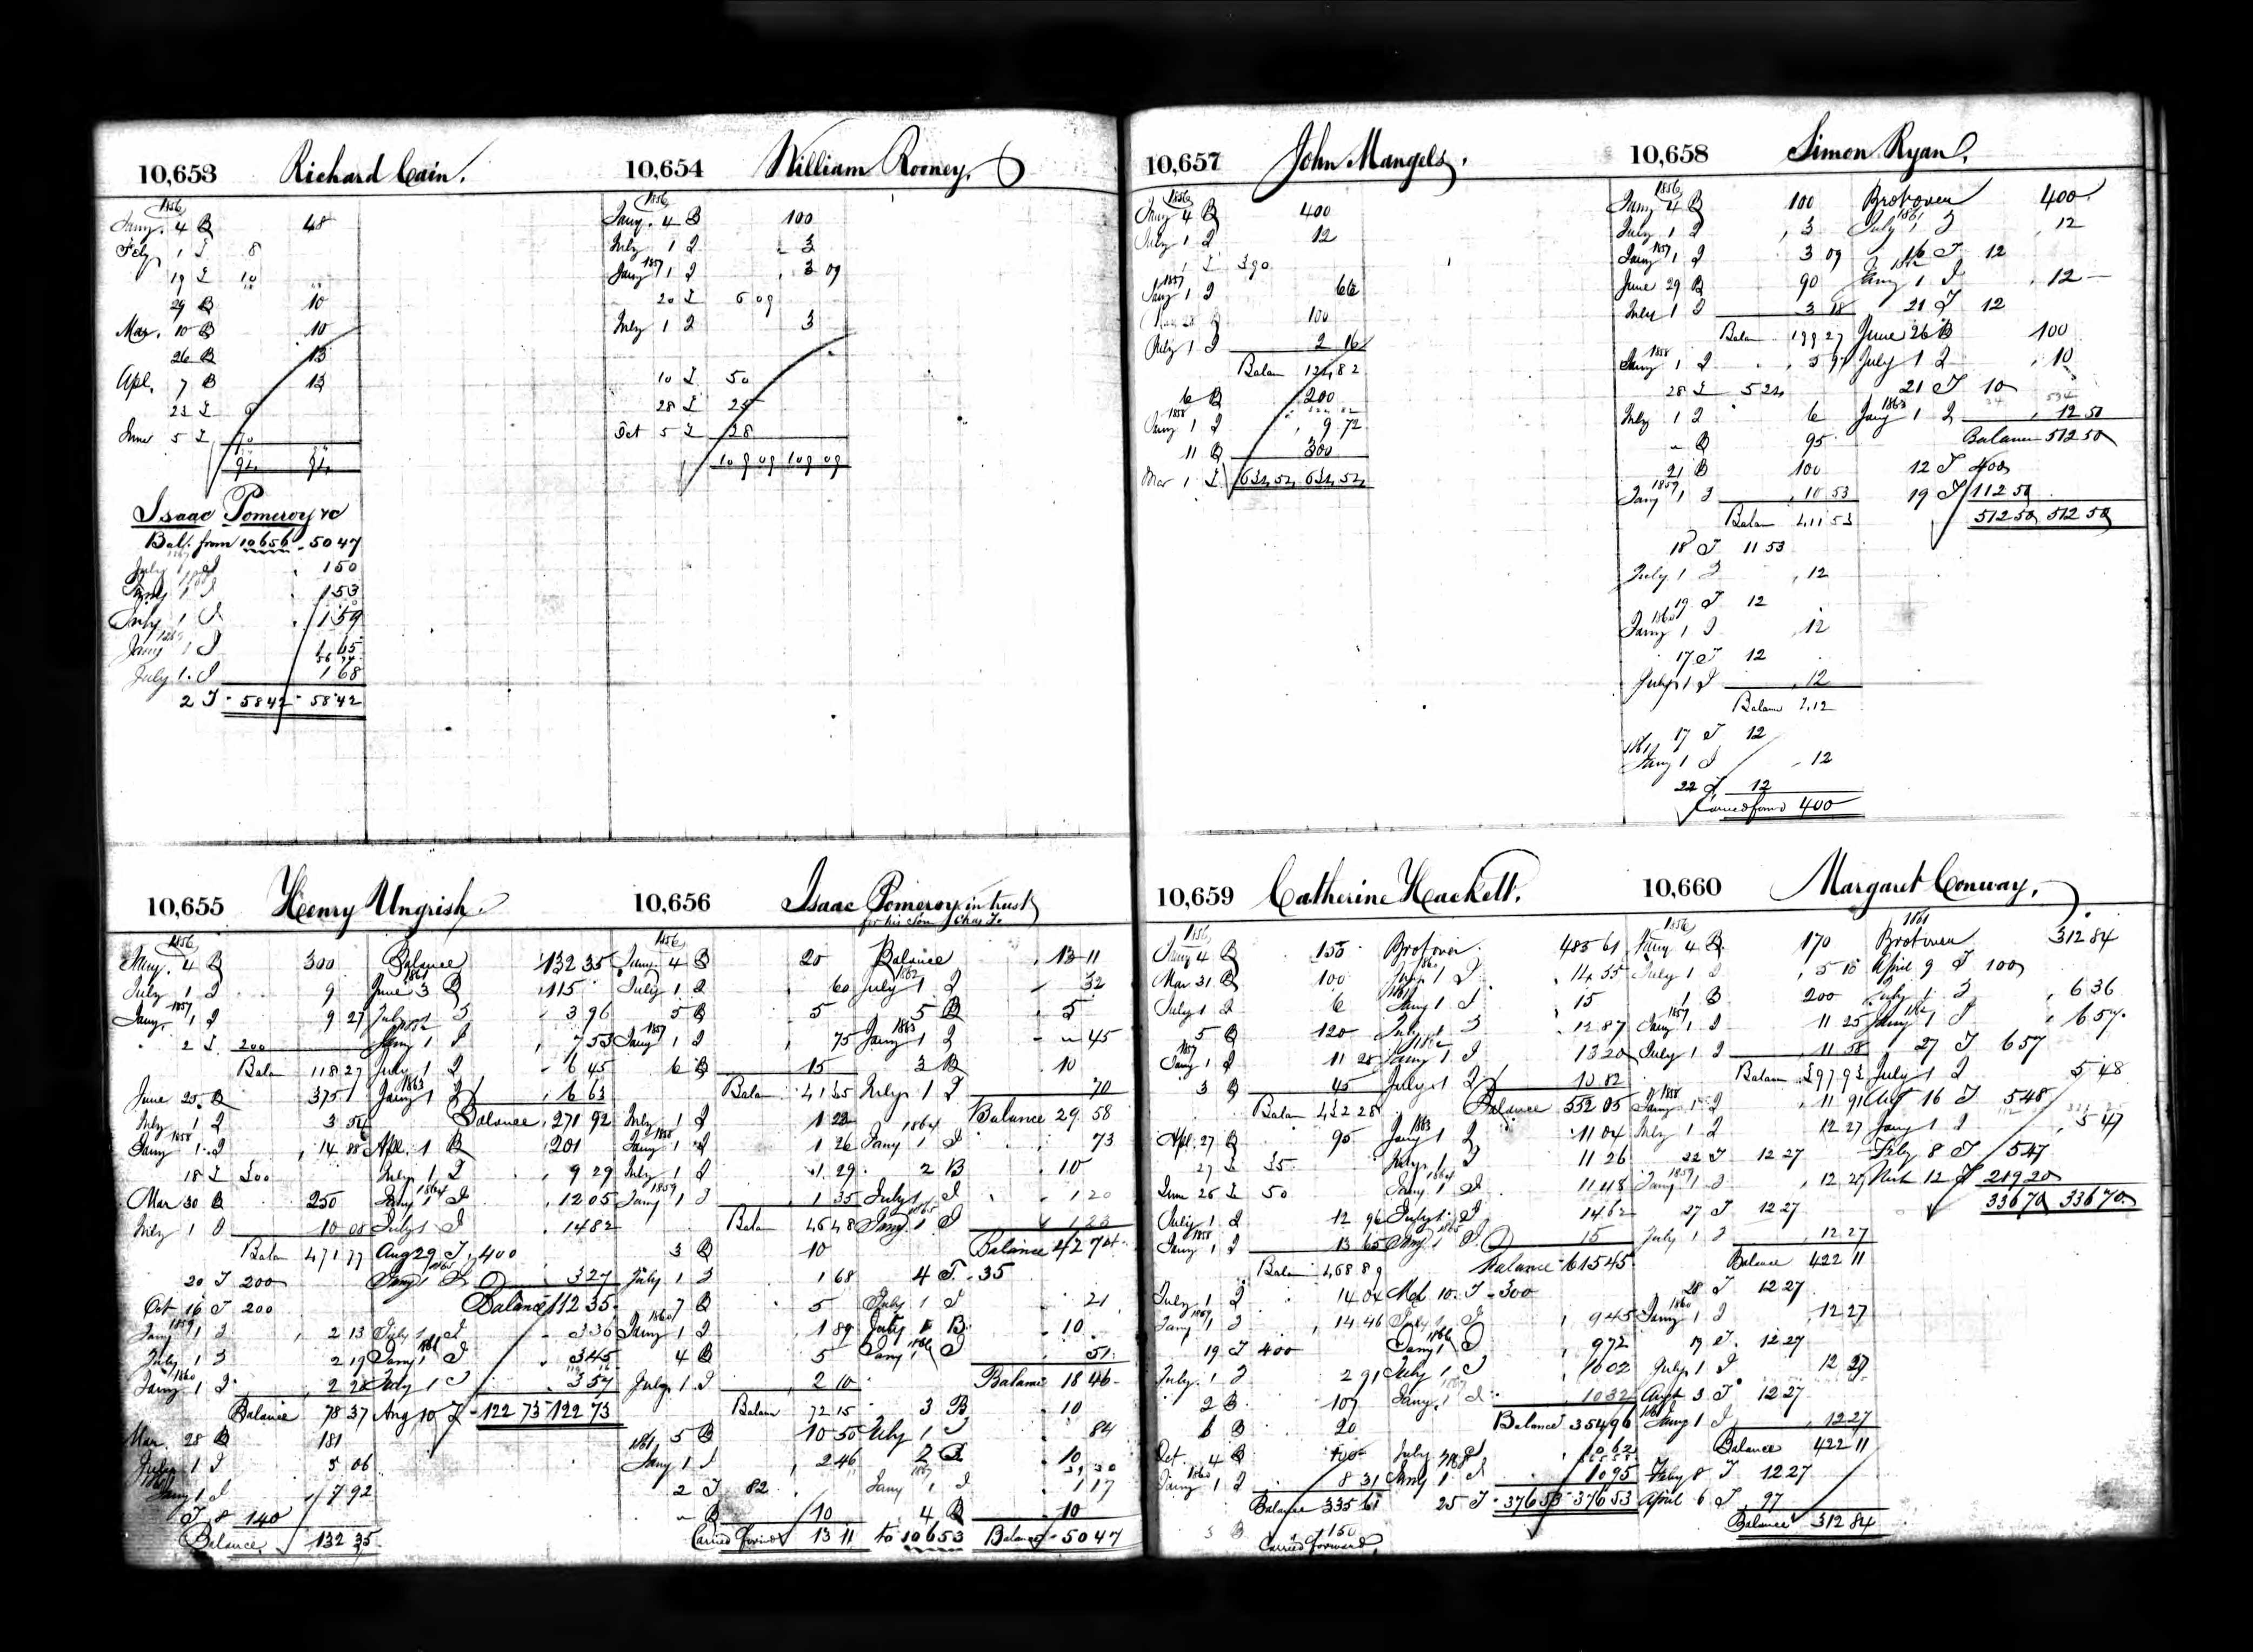 10,653 Richard Cain.
1856
Jany. 4 B 48
Feby 1 I 8
19 I 10
29 B 10
Mar. 10 B 10
26 B 13
Apl. 7 B 13
23 I
June 5 I 70
94 94
Isaac Pomeroy &c
Bal. from 10656 - 5047
July 1 I 150
1 I 153
July 1 I 159
Jany 1 I 165
July 1 I 168
2 I - 5842 - 5842
10,654 William Rooney.
1856
Jany. 4 B 100
July 1 I 3
1857
Jany 1 I 3 09
20 I 6 09
July 1 I 3
10 I 50
28 I 25
Oct 5 I 28
109 09 109 09
10,655 Henry Ungrish.
1856
Jany. 4 B 300
July 1 I 9
1857
Jany. 1 I 9 27
2 I 200
Balan 118 27
June 25 B 375
July 1 I 3 54
1858
Jany 1 I 14 88
18 I 300
Mar 30 B 250
July 1 I 10 08
Balan 471 77
20 I 200
Oct 16 I 200
1859
Jany 1 I 2 13
July 1 I 2 19
1860
Jany 1 I 2 28
Balance 78 37
Mar. 28 B 181
July 1 I 5 06
Jany 1 I 7 92
I 8 140
Balance 132 35
Balance 132 35
1861
June 3 B 115
July 1 I 3 96
Jany 1 I 7 53
July 1 I 6 45
1863
Jany 1 I 6 63
Balance 271 92
Apl. 1 B 201
July 1 I 9 29
1864
Jany 1 I 12 05
July 1 I 14 82
Aug 29 I 400
Jany 1 I 3 27
Balance 112 35
July 1 I 3 36
Jany 1 I 3 45
July 1 I 3 57
Aug 10 I - 122 73 - 122 73
10,656 Isaac Pomeroy in trust
for his son Chas. F.
1856
Jany 4 B 20
July 1 I 60
5 B 5
1857
Jany 1 I 75
6 B 15
Balan 41 35
July 1 I 1 23
1858
Jany 1 I 1 26
July 1 I 1 29
1859
Jany 1 I 1 35
Balan 46 48
3 B 10
July 1 I 1 68
7 B 5
1860
Jany 1 I 1 89
4 B 5
July 1 I 2 10
Balan 72 15
5 B 10 50
1861
Jany 1 I 2 46
2 I 82
" B 10
Carried forwd 13 11
Balance 13 11
1862
July 1 I 32
5 B 5
1863
Jany 1 I 45
3 B 10
July 1 I 70
Balance 29 58
1864
Jany 1 I 73
2 B 10
July 1 I 1 20
Jany 1 I 1 23
Balance 42 74
4 I 35
July 1 I 21
July B 10
Jany 1 I 51
Balance 18 46
3 B 10
July 1 I 84
2 B 10
Jany 1 I 1 17
4 B 10
to 10653 Balance - 50 47
10,657 John Mangels.
1856
Jany 4 B 400
July 1 I 12
1 I 390
1857
Jany 1 I 66
100
July 1 I 2 16
Balan 124 82
6 B 200
1858
Jany 1 I 9 72
11 B 300
Mar 1 I 634 54 634 54
10,658 Simon Ryan.
1856
Jany 4 B 100
July 1 I 3
1857
Jany 1 I 3 09
June 29 B 90
July 1 I 3 18
Balan 199 27
1858
Jany 1 I 5 97
28 I 5 24
July 1 I 6
" B 95
21 B 100
1859
Jany 1 I 10 53
Balan 411 53
18 I 11 53
July 1 I 12
19 I 12
1860
Jany 1 I 12
17 I 12
July 1 I 12
Balan 412
17 I 12
1861
Jany 1 I 12
22 I 12
Carried forwd 400
Brot over 400
1861
July 1 I 12
16 I 12
Jany 1 I 12
21 I 12
June 26 B 100
July 1 I 10
21 I 10
1863
Jany 1 I 12 50
Balance 512 50
12 I 400
19 I 112 50
512 50 512 50
10,659 Catherine Hackett.
1856
Jany 4 B 155
Mar 31 B 100
July 1 I 6
5 B 120
1857
Jany 1 I 11 28
3 B 45
Balan 432 28
Apl. 27 B 95
27 I 35
June 26 I 50
July 1 I 12 96
1858
Jany 1 I 13 65
Balan 468 89
July 1 I 14 04
1859
Jany 1 I 14 46
19 I 400
July 1 I 2 91
2 B 107
6 B 20
Oct. 4 B 100
1860
Jany 1 I 8 31
Balance 335 61
3 B 150
Carried forward
Brot over 485 61
July 1 I 14 55
Jany 1 I 15
July 1 I 12 87
Jany 1 I 13 20
July 1 I 10 82
Balance 552 05
1863
Jany 1 I 11 04
July 1 I 11 26
1864
Jany 1 I 11 48
July 1 I 14 62
Jany 1 I 15
Balance 615 45
Mch 10 I - 300
July 1 I 9 45
1866
Jany 1 I 9 72
July 1 I 10 02
Jany 1 I 10 32
Balance 354 96
July 1 I 10 62
Jany 1 I 10 95
25 I - 376 53 - 376 53
10,660 Margaret Conway.
1856
Jany 4 B 170
July 1 I 5 10
1 B 200
1857
Jany 1 I 11 25
July 1 I 11 58
Balan 397 93
1858
Jany 1 I 11 91
July 1 I 12 27
22 I 12 27
1859
Jany 1 I 12 27
27 I 12 27
July 1 I 12 27
Balance 422 11
28 I 12 27
1860
Jany 1 I 12 27
19 I 12 27
July 1 I 12 27
Augt 3 I 12 27
1861
Jany 1 I 12 27
Balance 422 11
Feby 8 I 12 27
April 6 I 97
Balance 312 84
1861
Brot over 312 84
April 9 I 100
July 1 I 6 36
Jany 1 I 6 57
27 I 6 57
July 1 I 5 48
Augt 16 I 5 48
Jany 1 I 5 47
Feby 8 I 5 47
Mch 12 I 219 20
336 70 336 70